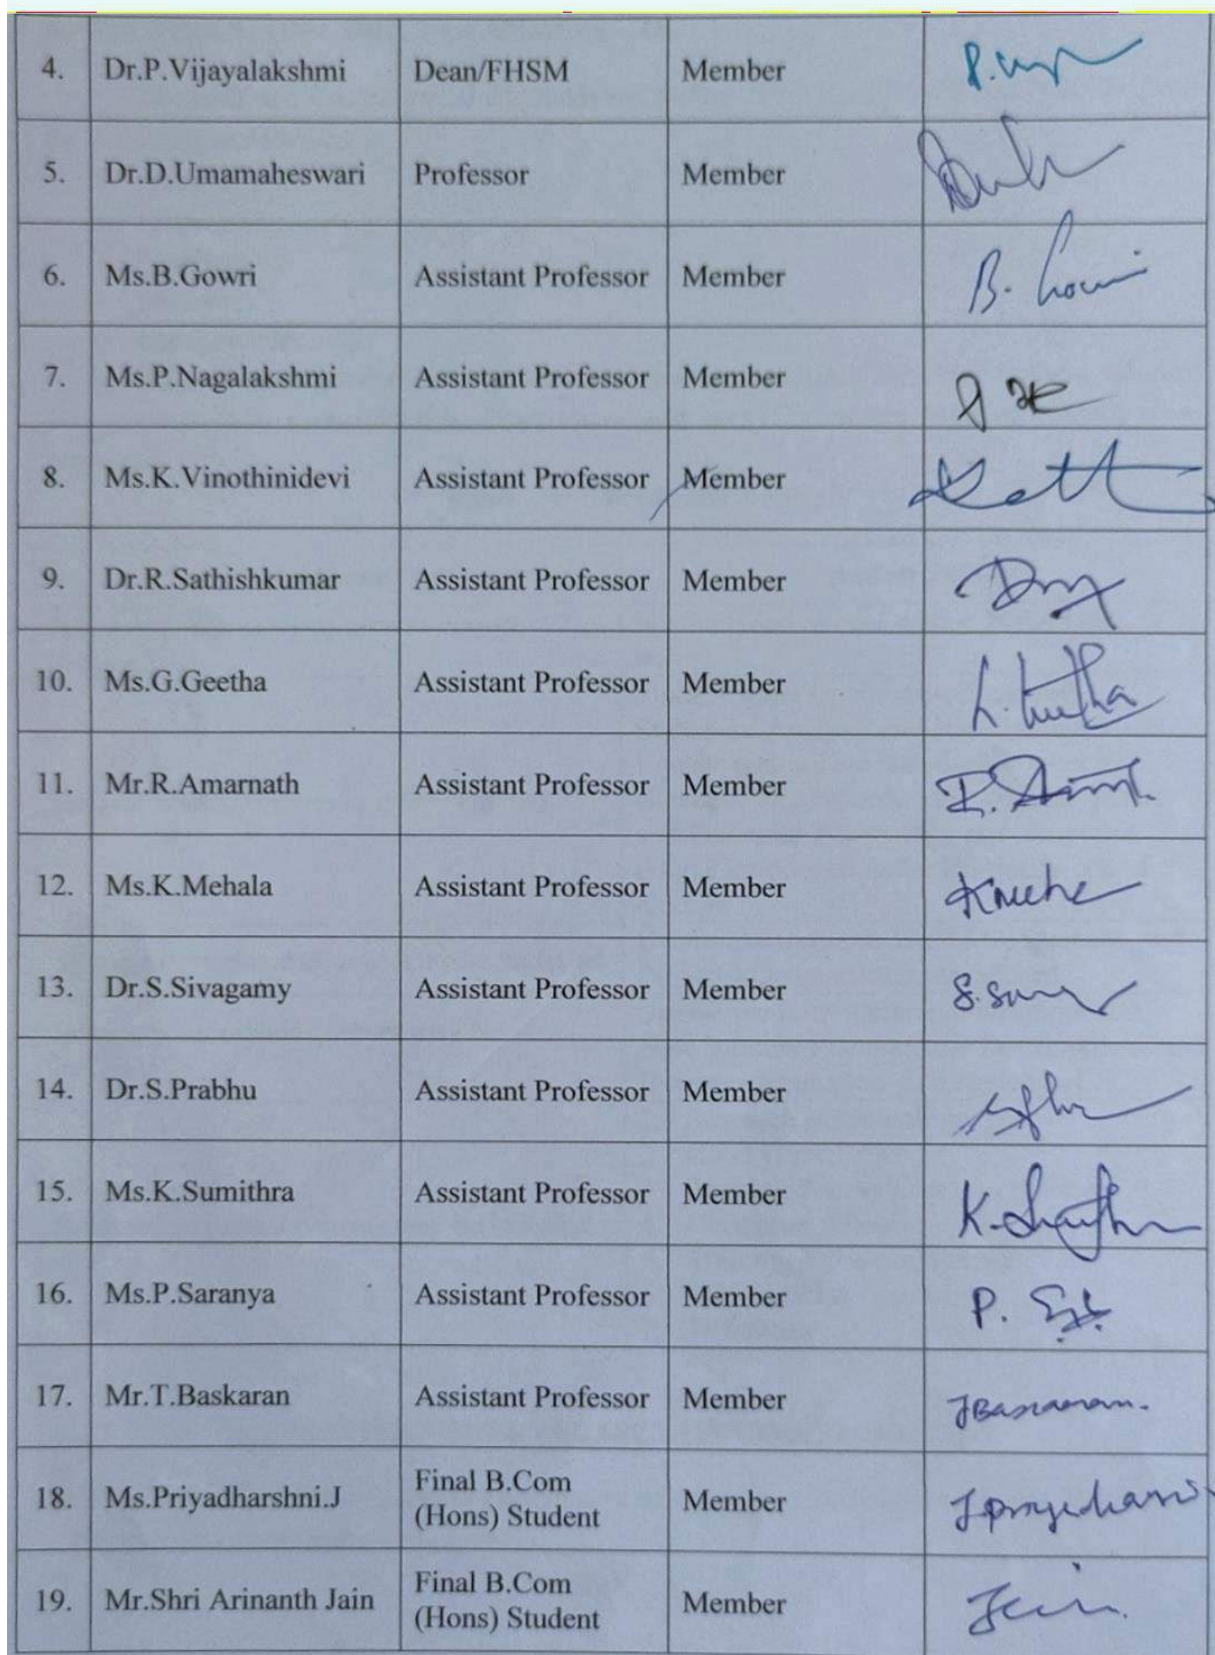 4. Dr.P.Vijayalakshmi Dean/FHSM Member
5. Dr.D.Umamaheswari Professor Member
6. Ms.B.Gowri Assistant Professor Member B. Gowri
7. Ms.P.Nagalakshmi Assistant Professor Member
8. Ms.K.Vinothinidevi Assistant Professor Member
9. Dr.R.Sathishkumar Assistant Professor Member
10. Ms.G.Geetha Assistant Professor Member G. Geetha
11. Mr.R.Amarnath Assistant Professor Member
12. Ms.K.Mehala Assistant Professor Member
13. Dr.S.Sivagamy Assistant Professor Member
14. Dr.S.Prabhu Assistant Professor Member
15. Ms.K.Sumithra Assistant Professor Member
16. Ms.P.Saranya Assistant Professor Member
17. Mr.T.Baskaran Assistant Professor Member TBaskaran.
18. Ms.Priyadharshni.J Final B.Com
(Hons) Student Member
19. Mr.Shri Arinanth Jain Final B.Com
(Hons) Student Member Jain.